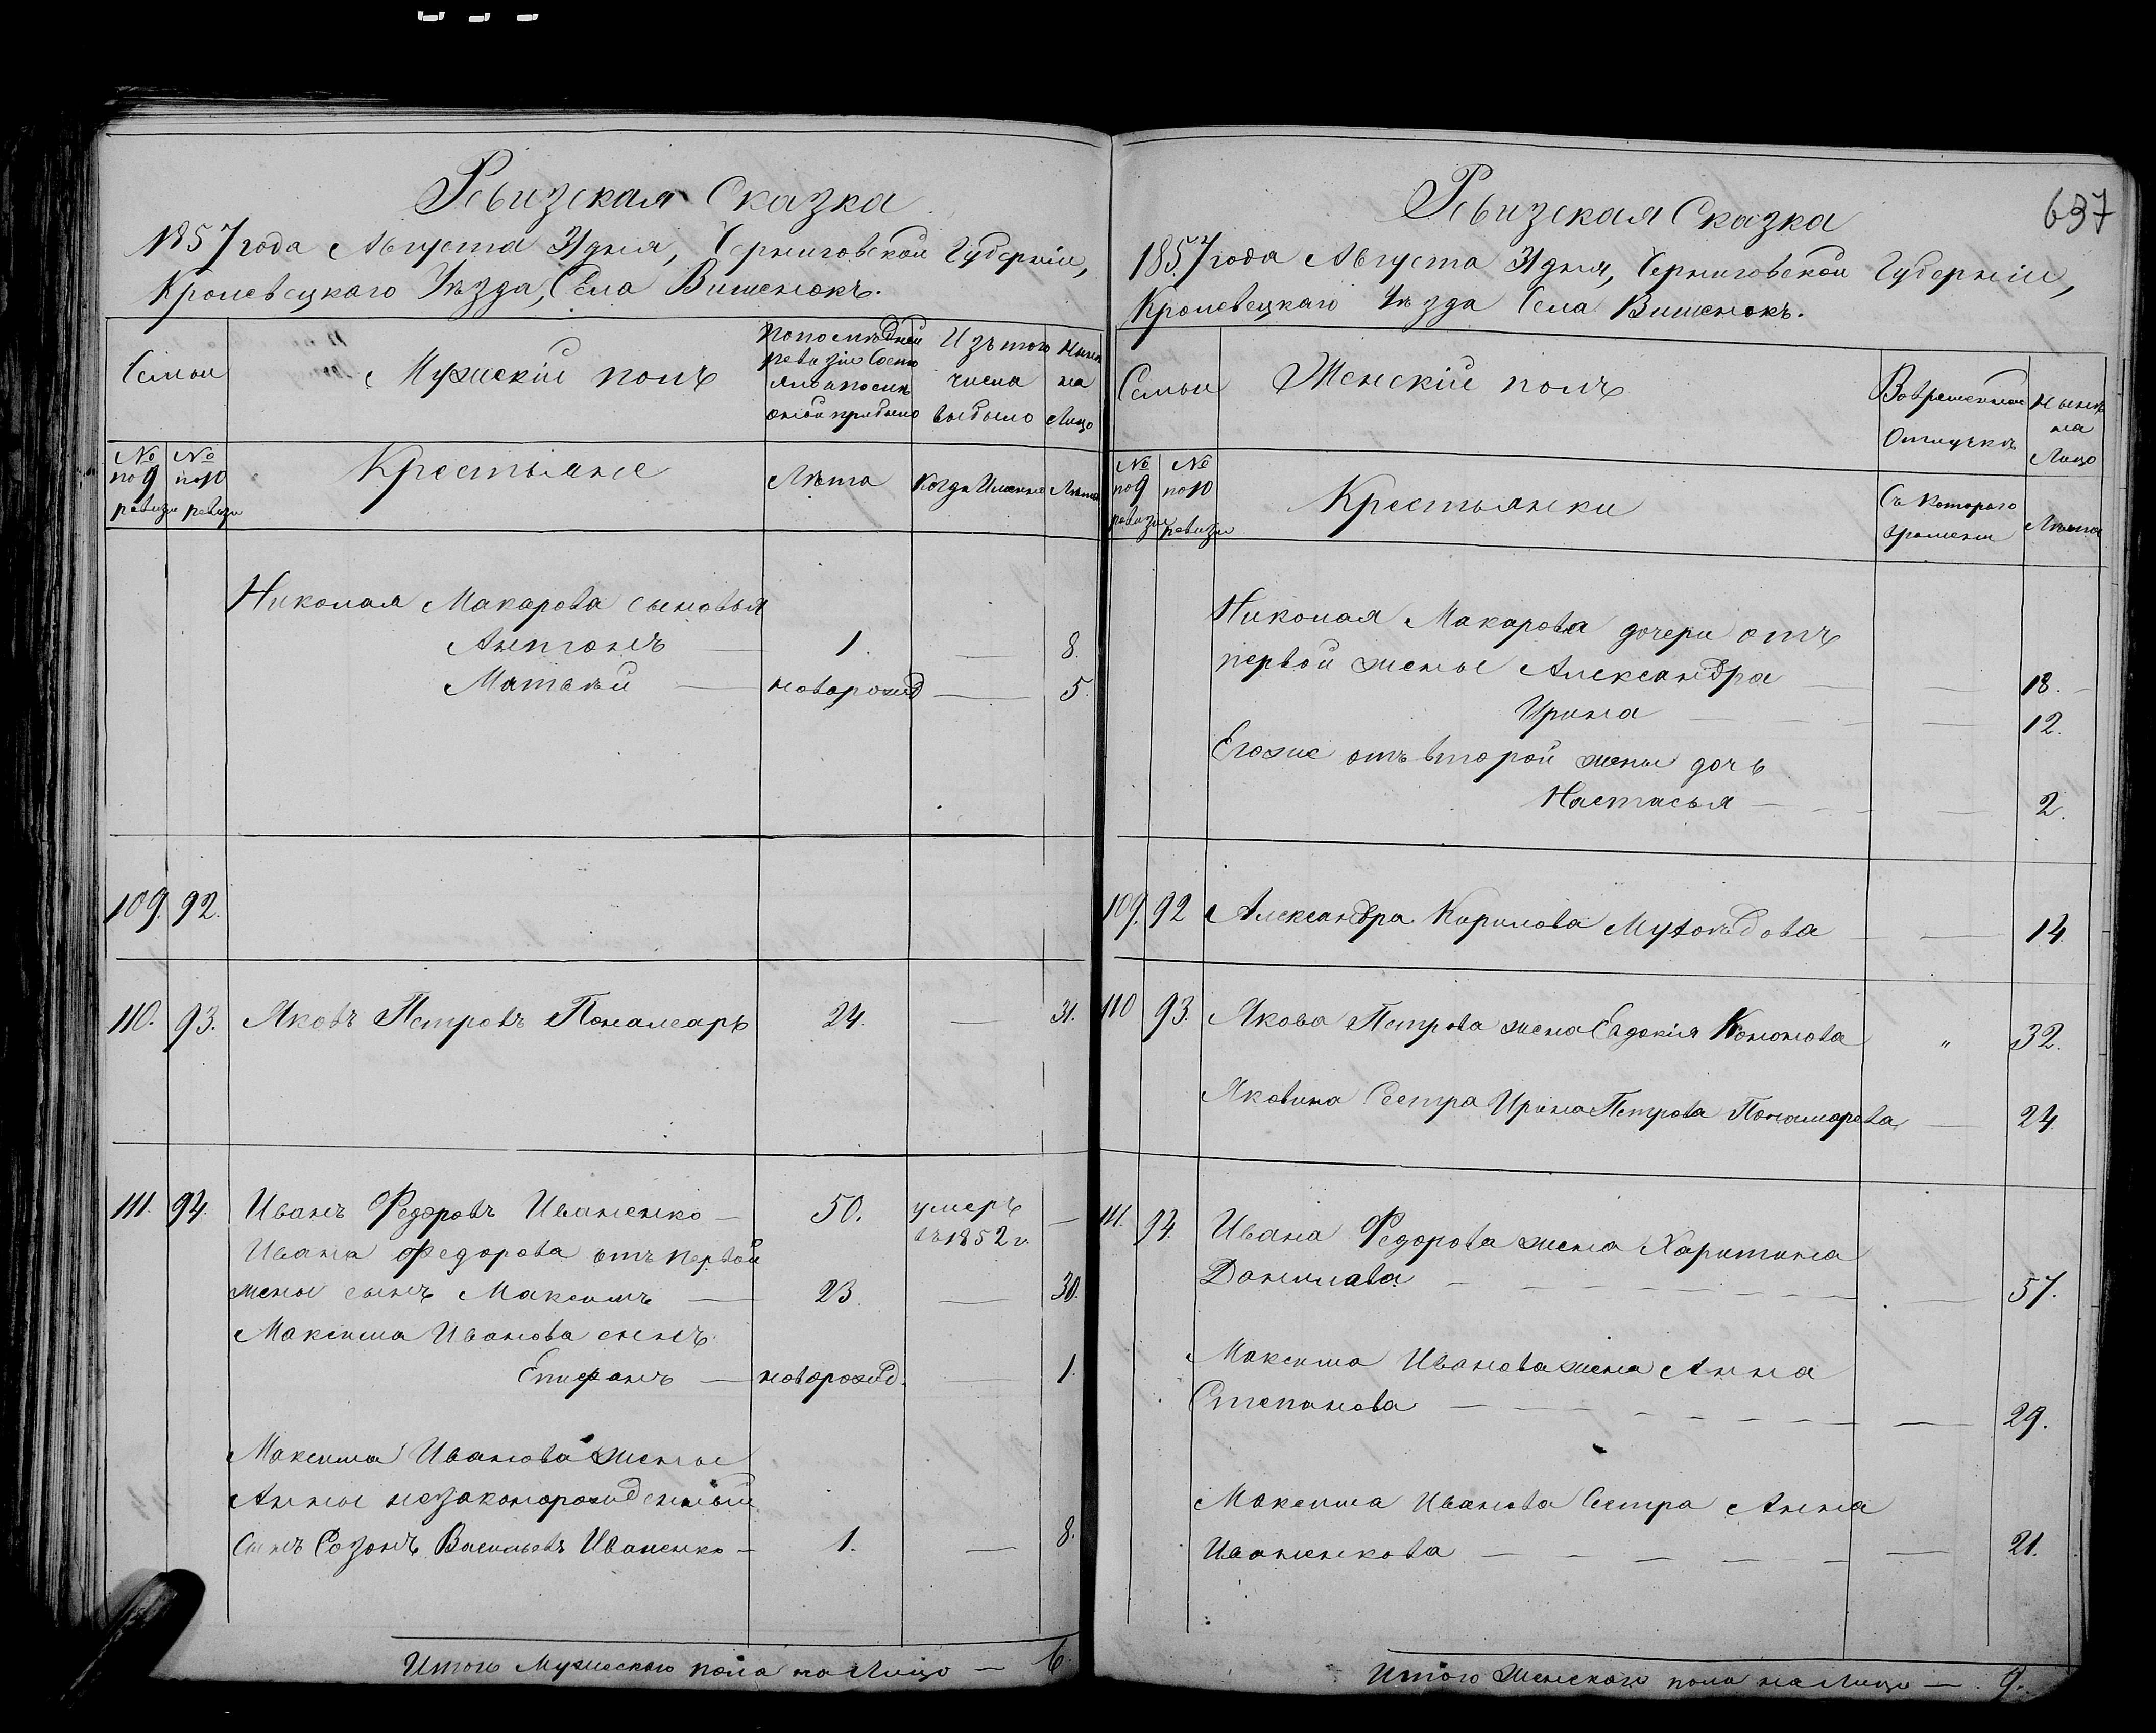 Ревизская Сказка
1857 года Августа 31 дня, Черниговской Губерніи,
Кролевецкаго Уѣзда, Села Вишенокъ.
Семьи
Мужскій полъ
По последней ревизіи Состо
яло и после
оной прибыло
Изъ того
числа
выбыло
Нынѣ
на
Лицо
№
по 9
ревизіи
№
по 10
ревизіи
Крестьяне
Лѣта
Когда Именно
Лѣта
Николая Макарова сыновья
Антонъ — 1. — 8.
Матвѣй — новорожд — 5.
109. 92.
110. 93. Яковъ Петровъ Понамарь 24. — 31.
111. 94. Иванъ Федоровъ Иваненко — 50. умеръ —
въ 1852 г.
Ивана Федорова отъ первой
жены сынъ Максимъ — 23. — 30.
Максима Иванова сынъ
Епифанъ — новорожд. — 1.
Максима Иванова жены
Анны незаконорожденный
Сынъ Созонъ Васильевъ Иваненко — 1. — 8.
Итого Мужескаго пола на Лицо — 6.
637
Ревизская Сказка
1857 года Августа 31 дня, Черниговской Губерніи,
Кролевецкаго Уѣзда Села Вишенокъ.
Семьи
Женскій полъ
Во временной
Отлучкѣ
Нынѣ
на
Лицо
№
по 9
ревизіи
№
по 10
ревизіи
Крестьянки
Съ Котораго
времени
Лѣта
Николая Макарова дочери отъ
первой жены Александра — 18. —
Ирина — 12.
Егоже отъ второй жены дочь
Настасья — 2.
109. 92 Александра Кирилова — 14.
110 93. Якова Петрова жена Евдокія Кононова " 32.
Яковина Сестра Ирина Петрова Понамарева — 24.
111. 94. Ивана Федорова жена Харитина
Данилова — 57.
Максима Иванова жена Анна
Степанова — 29.
Максима Иванова Сестра Анна
Иваненкова — 21.
Итого Женскаго пола на Лицо — 9.